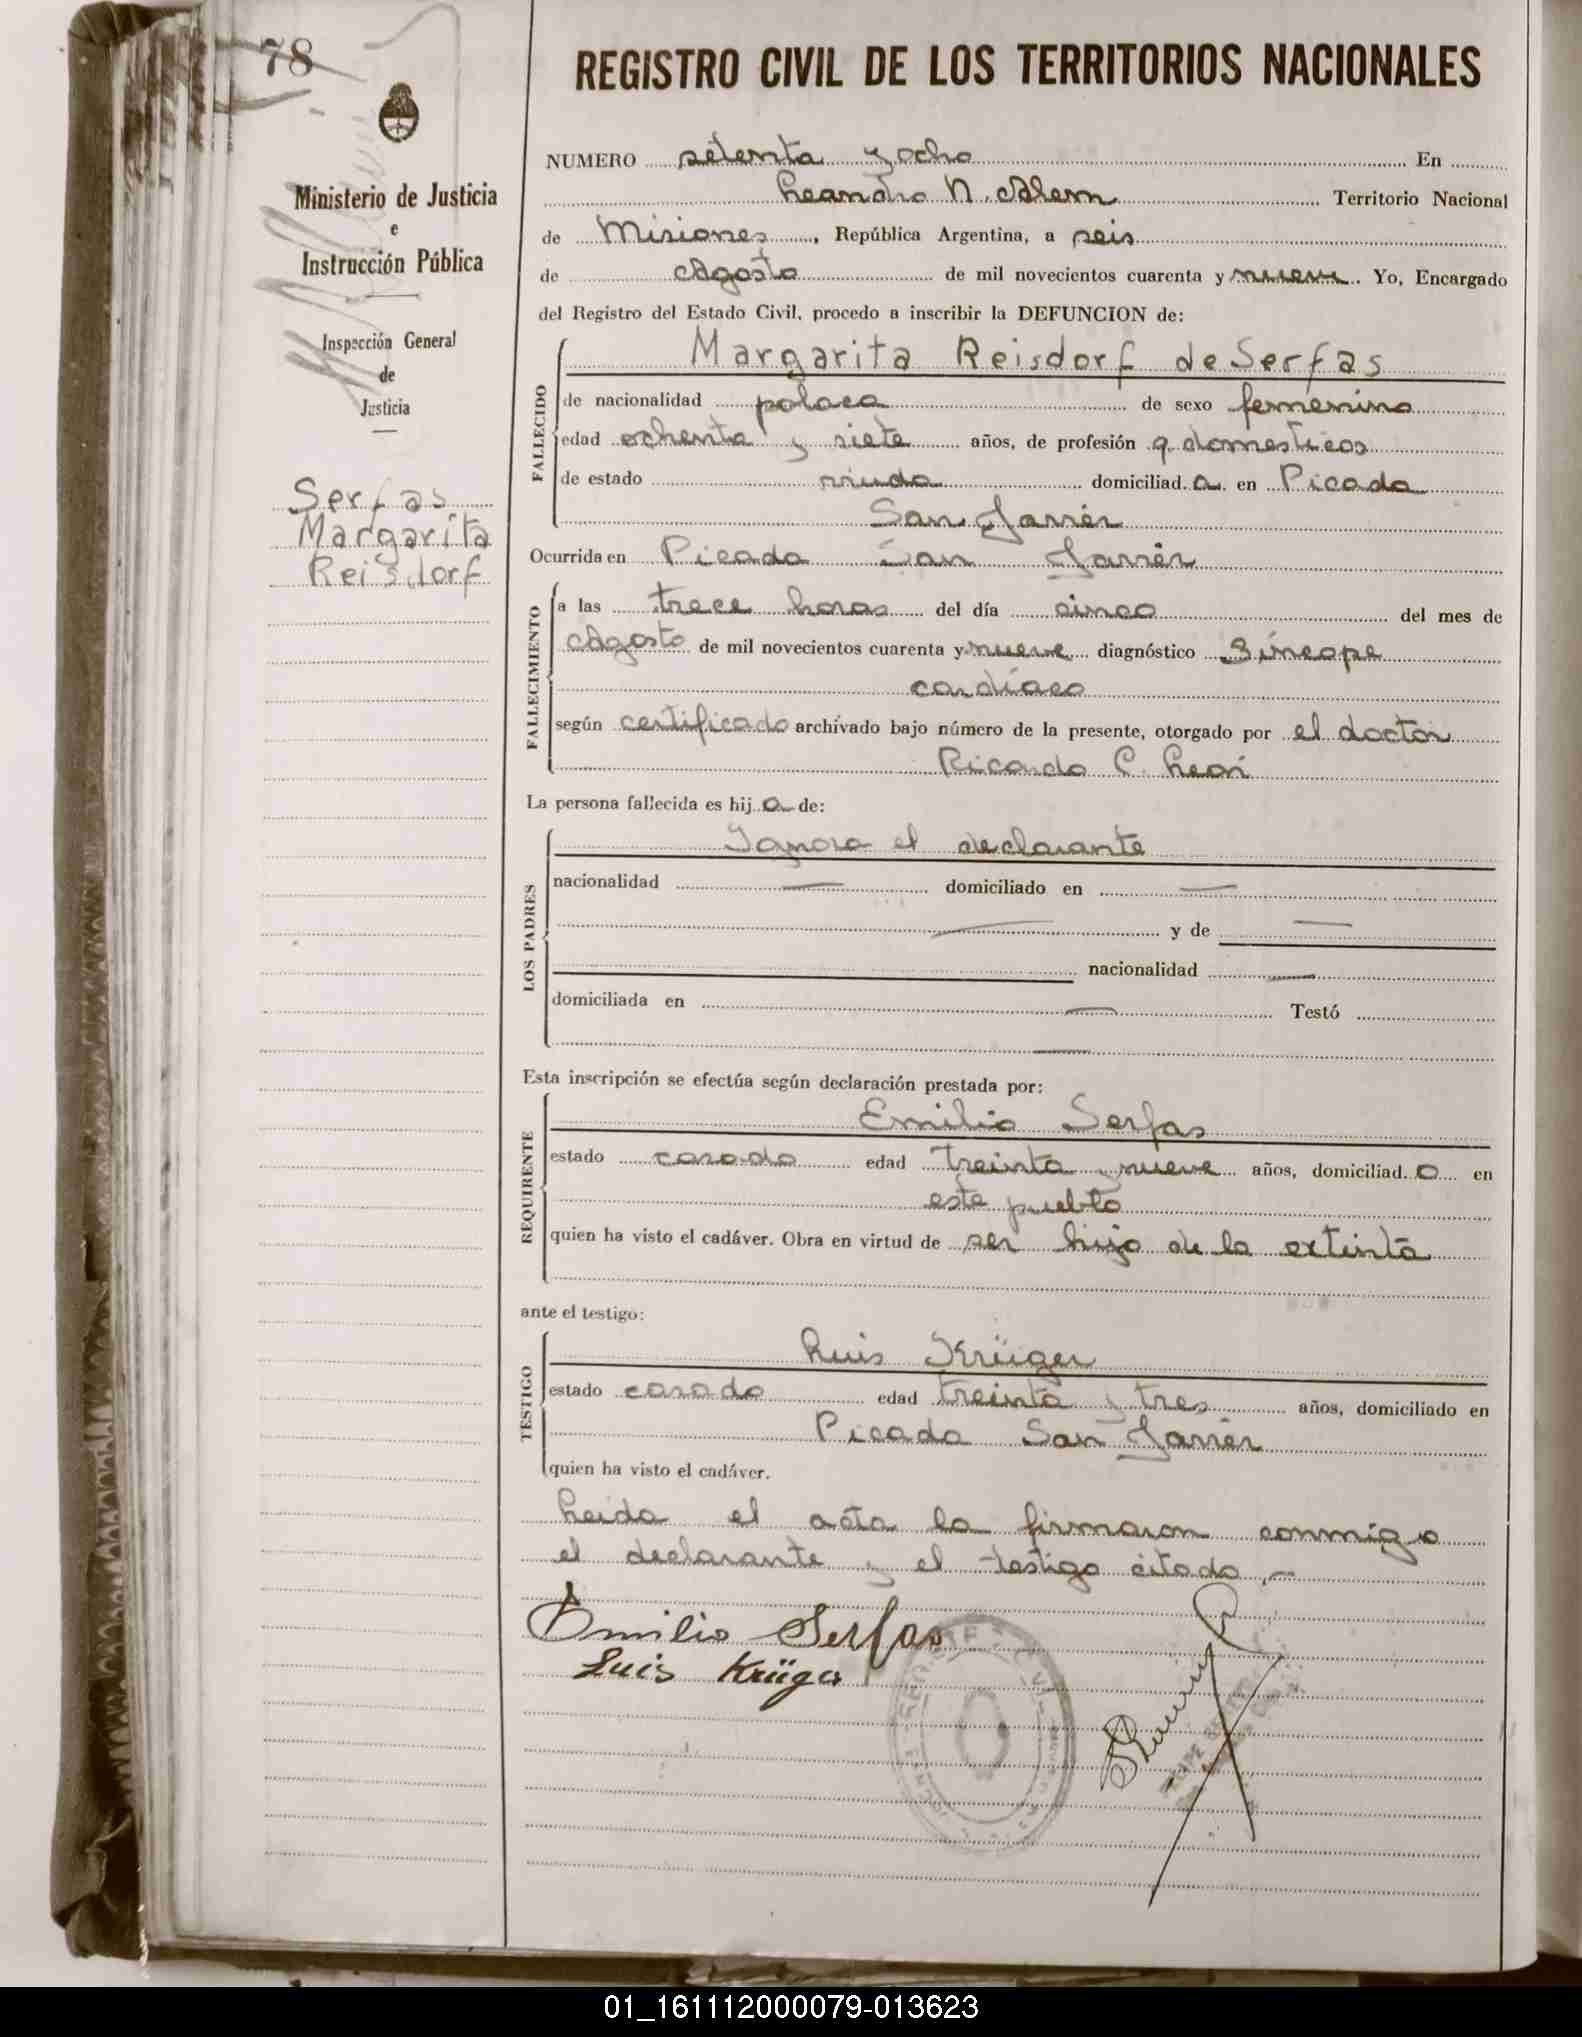 78
Ministerio de Justicia
e
Instrucción Pública
Inspección General
de
Justicia
Serfas
Margarita
Reisdorf
REGISTRO CIVIL DE LOS TERRITORIOS NACIONALES
NUMERO setenta y ocho En
Leandro N. Alem Territorio Nacional
de Misiones, República Argentina, a seis
de Agosto de mil novecientos cuarenta y nueve. Yo, Encargado
del Registro del Estado Civil, procedo a inscribir la DEFUNCION de:
FALLECIDO
Margarita Reisdorf de Serfas
de nacionalidad polaca de sexo femenino
edad ochenta y siete años, de profesión q. domesticos
de estado viuda domiciliad a en Picada
San Javier
Ocurrida en Picada San Javier
FALLECIMIENTO
a las trece horas del día cinco del mes de
Agosto de mil novecientos cuarenta y nueve diagnóstico Síncope
cardíaco
según certificado archivado bajo número de la presente, otorgado por el doctor
Ricardo C. Leon
La persona fallecida es hij a de:
LOS PADRES
Ignora el declarante
nacionalidad — domiciliado en —
— y de —
nacionalidad —
domiciliada en — Testó
—
Esta inscripción se efectúa según declaración prestada por:
REQUIRENTE
Emilio Serfas
estado casado edad treinta y nueve años, domiciliad o en
este pueblo
quien ha visto el cadáver. Obra en virtud de ser hijo de la extinta
ante el testigo:
TESTIGO
Luis Krüger
estado casado edad treinta y tres años, domiciliado en
Picada San Javier
quien ha visto el cadáver.
Leida el acta la firmaron conmigo
el declarante y el testigo citado.—
Emilio Serfas
Luis Krüger
01_161112000079-013623